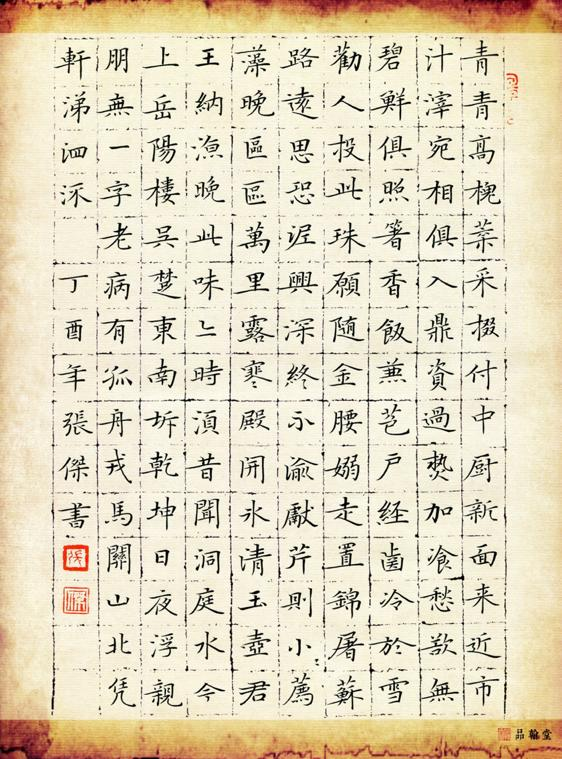 青青髙槐葉采掇付中厨新面来近市
汁滓宛相俱入鼎資過熱加飡愁欲無
碧鮮俱照箸香飯兼苞戶経齒冷於雪
勸人投此珠願隨金腰嫋走置錦屠蘇
路遠思恐泥興深終不渝獻芹則小薦
藻晚區區萬里露寒殿開氷清玉壺君
王納凉晚此味亦時須昔聞洞庭水今
上岳陽樓吳楚東南坼乾坤日夜浮親
朋無一字老病有孤舟戎馬關山北凭
軒涕泗流 丁酉年張傑書
品翰堂